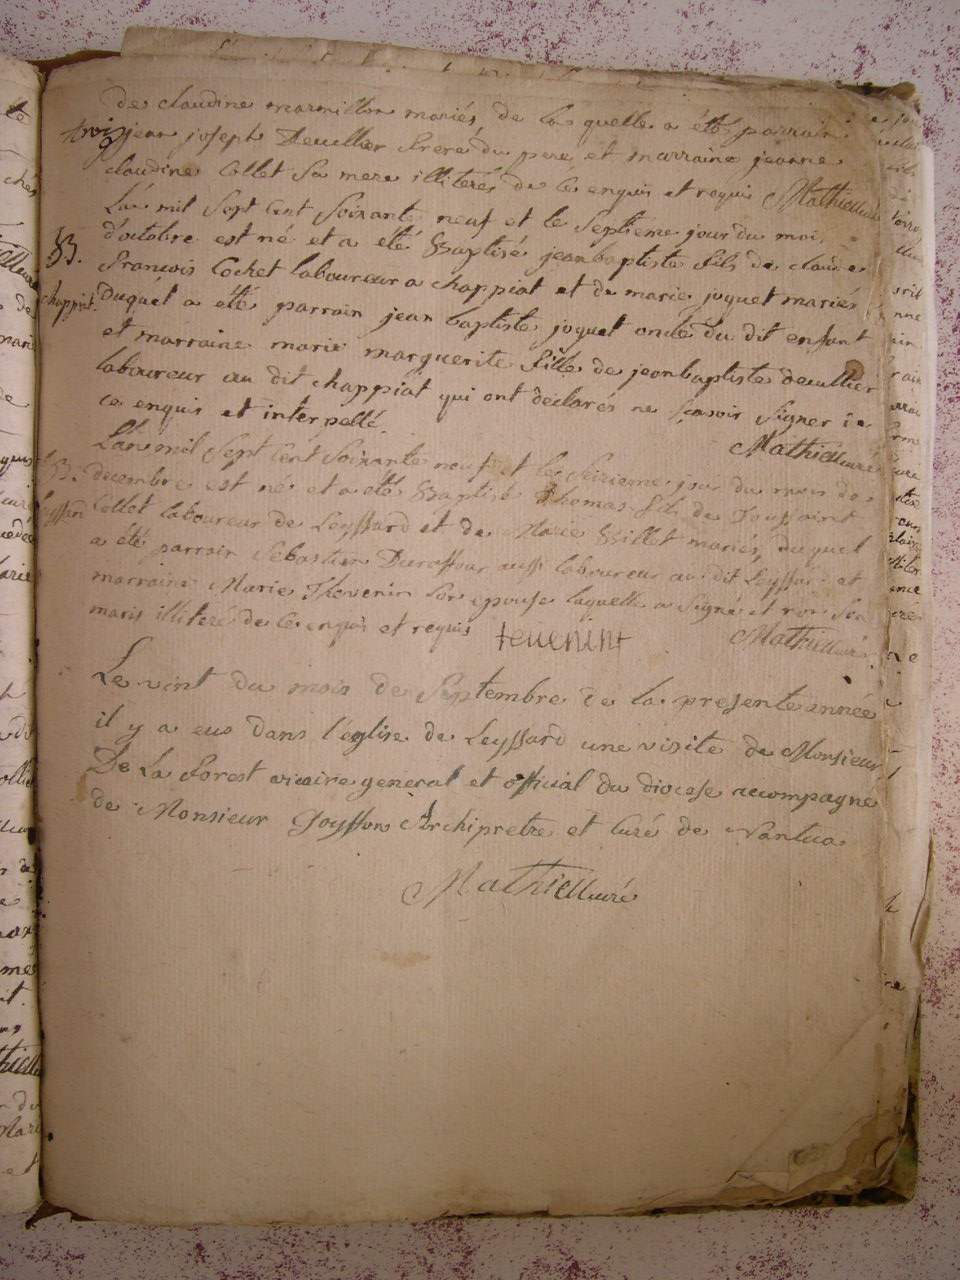 de claudine marmillon mariés, de la quelle a été parrain
trois jean joseph Deuillier frere du pere et marraine jeanne
claudine Collet sa mere illitérés de ce enquis et requis Mathieu curé
L'an mil sept cent soixante neuf et le septieme jour du mois
d'octobre est né et a été Baptisé jean baptiste fils de claude
B.
francois Cochet laboureur a chappiat et de marie joguet mariés
chappiat.
Duquel a été parrain jean baptiste joguet oncle du dit enfant
et marraine marie marguerite fille de jean baptiste deuillier
laboureur au dit chappiat qui ont déclarés ne sçavoir signer de
ce enquis et interpellé
Mathieu curé
L'an mil sept cent soixante neuf et le seizieme jour du mois de
B. decembre est né et a été Baptisé Thomas fils de Toussaint
Leyssard Collet laboureur de Leyssard et de Marie Billet mariés, duquel
a été parrain Sebastien Duraffour aussi laboureur au dit Leyssard et
marraine Marie Thevenin son epouse laquelle a signé et non son
maris illiteré de ce enquis et requis tevenint Mathieu curé
Le vint du mois de Septembre de la presente année
il y a eus dans l'église de Leyssard une visite de Monsieur
De La Forest vicaire general et official du diocese accompagne
de Monsieur Goyffon Archipretre et Curé de Nantua
Mathieu curé